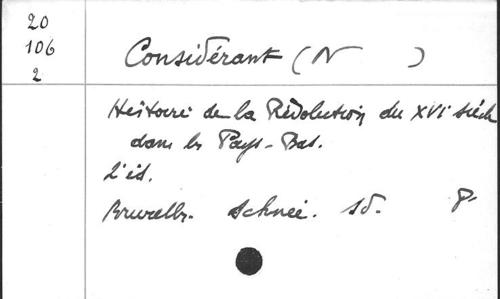 20
106
2
Considérant (N )
Histoire de la Révolution du XVIe siècle
dans les Pays-Bas.
2e éd.
Bruxelles. Schnée. sd. 8°